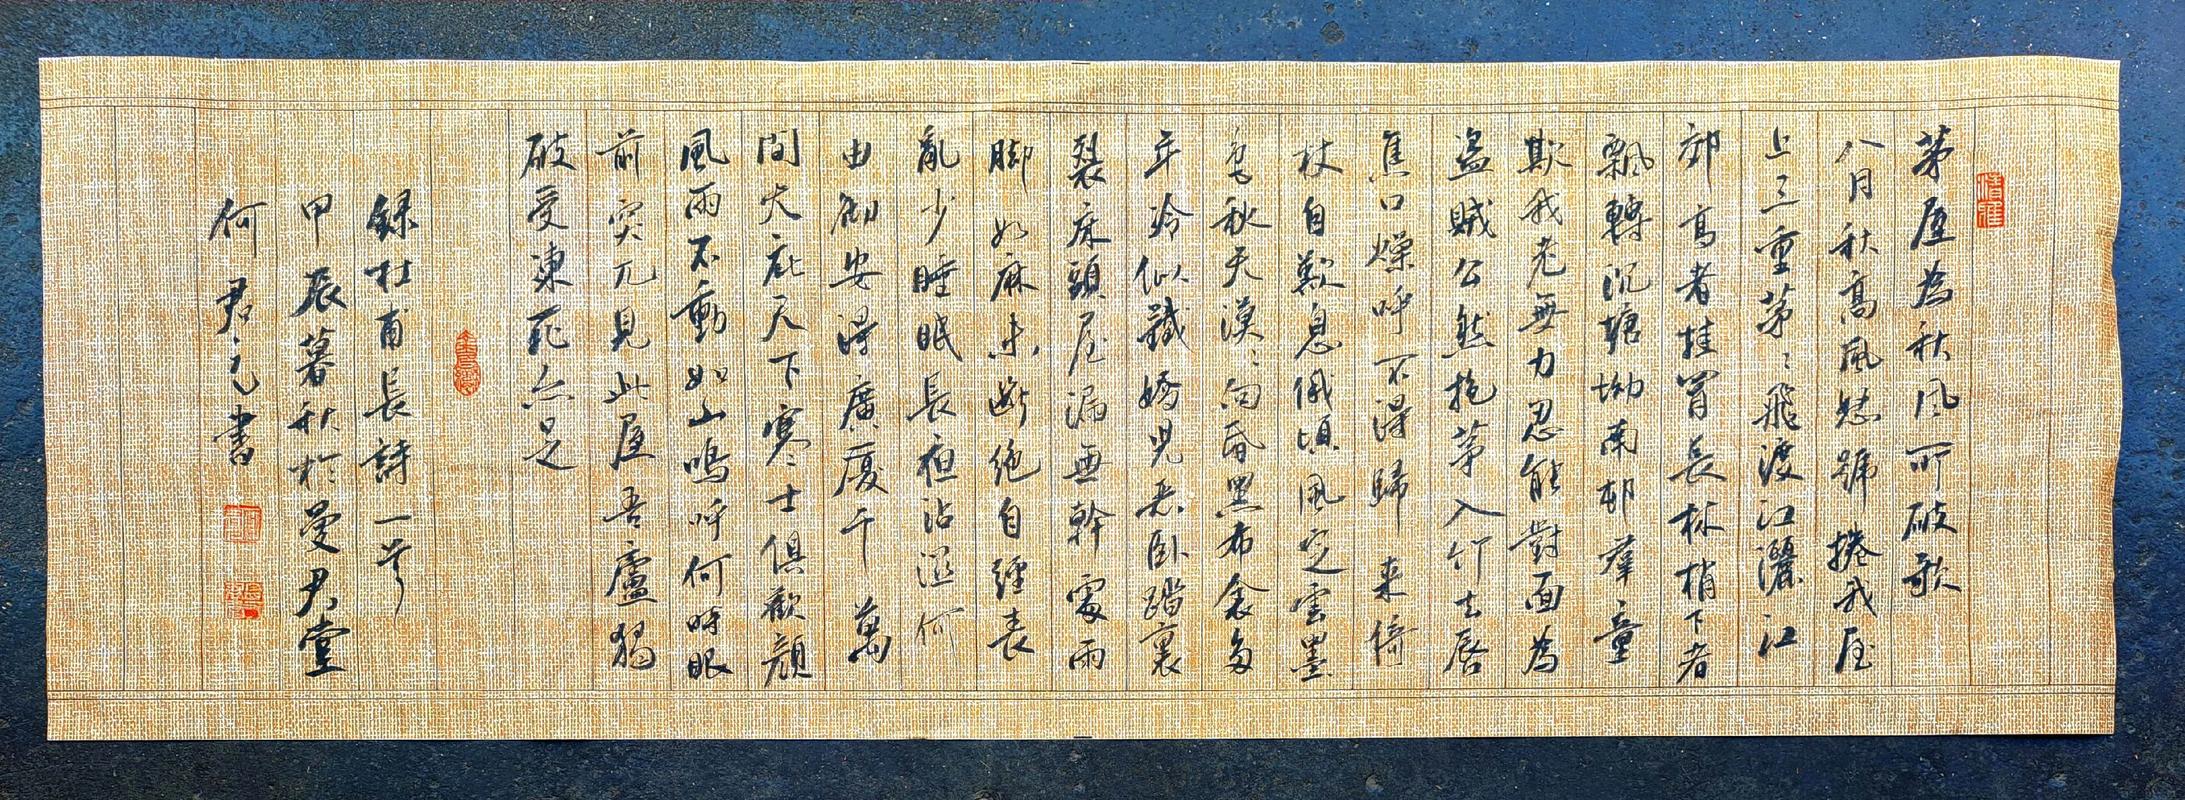 茅屋為秋風所破歌
八月秋高風怒號捲我屋
上三重茅〻飛渡江灑江
郊高者挂罥長林梢下者
飄轉沉塘坳南邨羣童
欺我老無力忍能對面為
盜賊公然抱茅入竹去唇
焦口燥呼不得歸來倚
杖自歎息俄頃風定雲墨
色秋天漠〻向昏黑布衾多
年冷似鐵嬌兒惡臥踏裏
裂床頭屋漏無幹處雨
腳如麻未斷絕自經喪
亂少睡眠長夜沾溼何
由徹安得廣廈千萬
間大庇天下寒士俱歡顏
風雨不動如山嗚呼何時眼
前突兀見此屋吾廬獨
破受凍死亦足
錄杜甫長詩一首
甲辰暮秋於曼君堂
何君元書